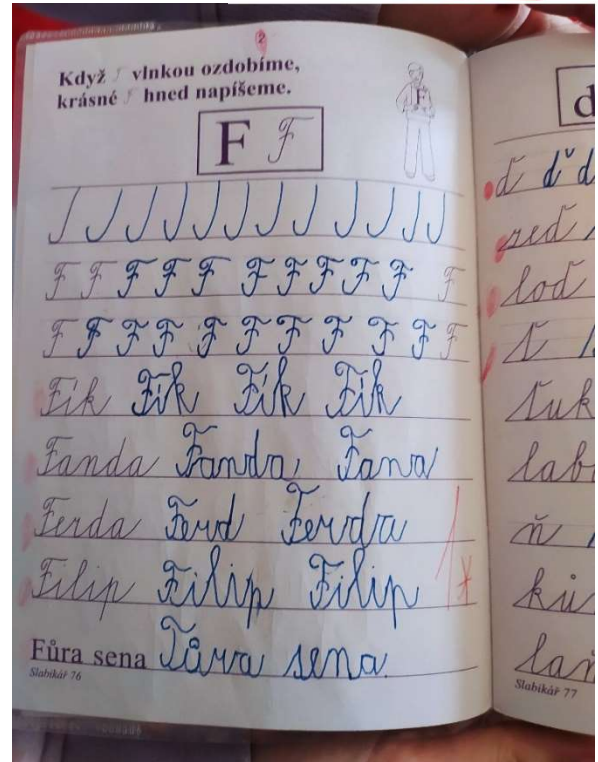 2
Když F vlnkou ozdobíme,
krásné F hned napíšeme.
F
F F
J J J J J J J J J J J
F F F F F F F F F F F
F F F F F F F F F F
Fík Fík Fík Fík
Fanda Fanda Fana
Ferda Ferd Ferda
Filip Filip Filip
1*
Fůra sena Fůra sena.
Slabikář 76
d
ď ď d
zeď
loď
Ť
labu
ň
ků
laň
Slabikář 77